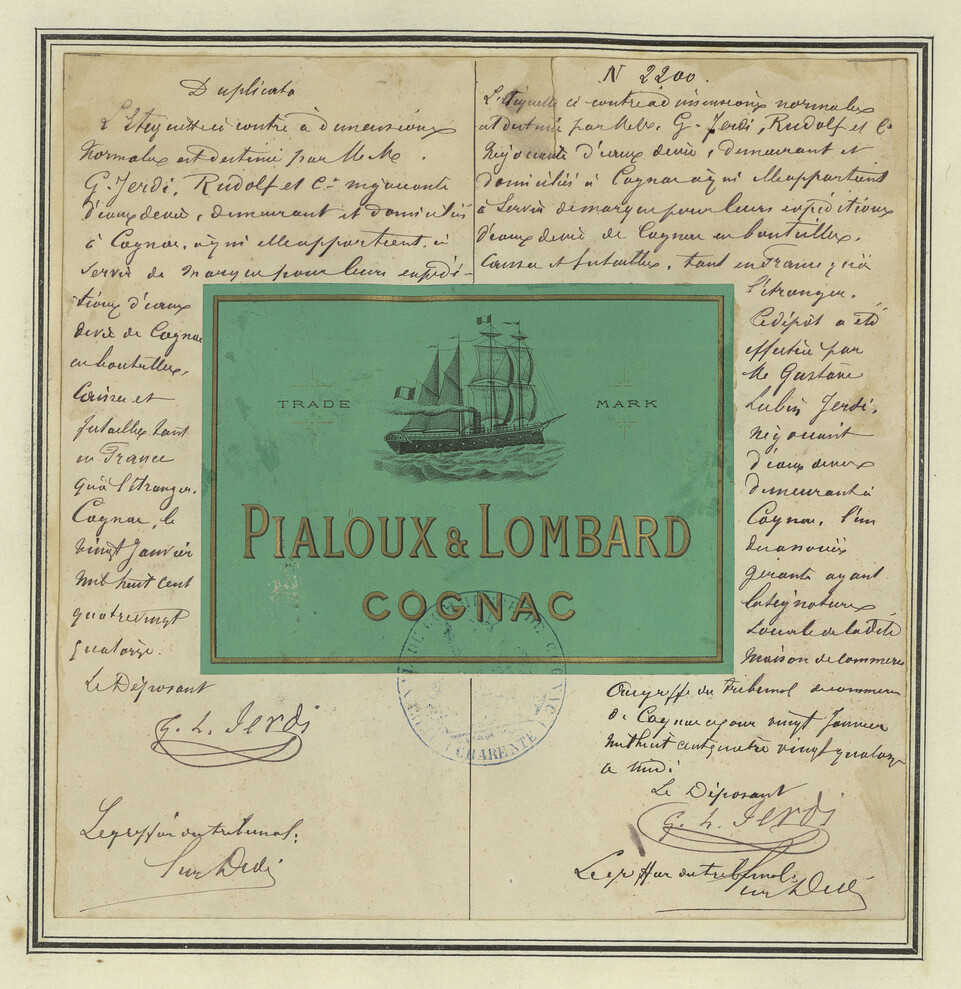 Duplicata
L'Etiquette ci contre à dimensions
normales est destinée par MM.
G. Jerdi, Rudolf et Cie négociants
d'eaux de vie, demeurant et domiciliés
à Cognac, à qui elle appartient, à
servir de marque pour leurs expédi-
tions d'eaux
de vie de Cognac
en bouteilles,
caisses et
futailles tant
en France
qu'à l'étranger.
Cognac, le
vingt Janvier
mil huit cent
quatre vingt
quatorze.
Le Déposant
G. L. Jerdi
Le greffier du tribunal:
N 2200.
L'étiquette ci contre à dimensions normales
est destinée par MM. G. Jerdi, Rudolf et Cie
négociants d'eaux de vie, demeurant et
domiciliés à Cognac à qui elle appartient
à servir de marque pour leurs expéditions
d'eaux de vie de Cognac en bouteilles,
caisses et futailles, tant en France qu'à
l'étranger.
Ce dépôt a été
effectué par
Mr Gustave
Lubin Jerdi,
négociant
d'eaux de vie
demeurant à
Cognac, l'un
des associés
gérants ayant
la signature
sociale de la dite
maison de commerce
Au greffe du tribunal de commerce
de Cognac ce jour vingt Janvier
mil huit cent quatre vingt quatorze
à midi
Le Déposant
G. L. Jerdi
Le greffier du tribunal:
TRADE MARK
PIALOUX & LOMBARD
COGNAC
(CHARENTE)